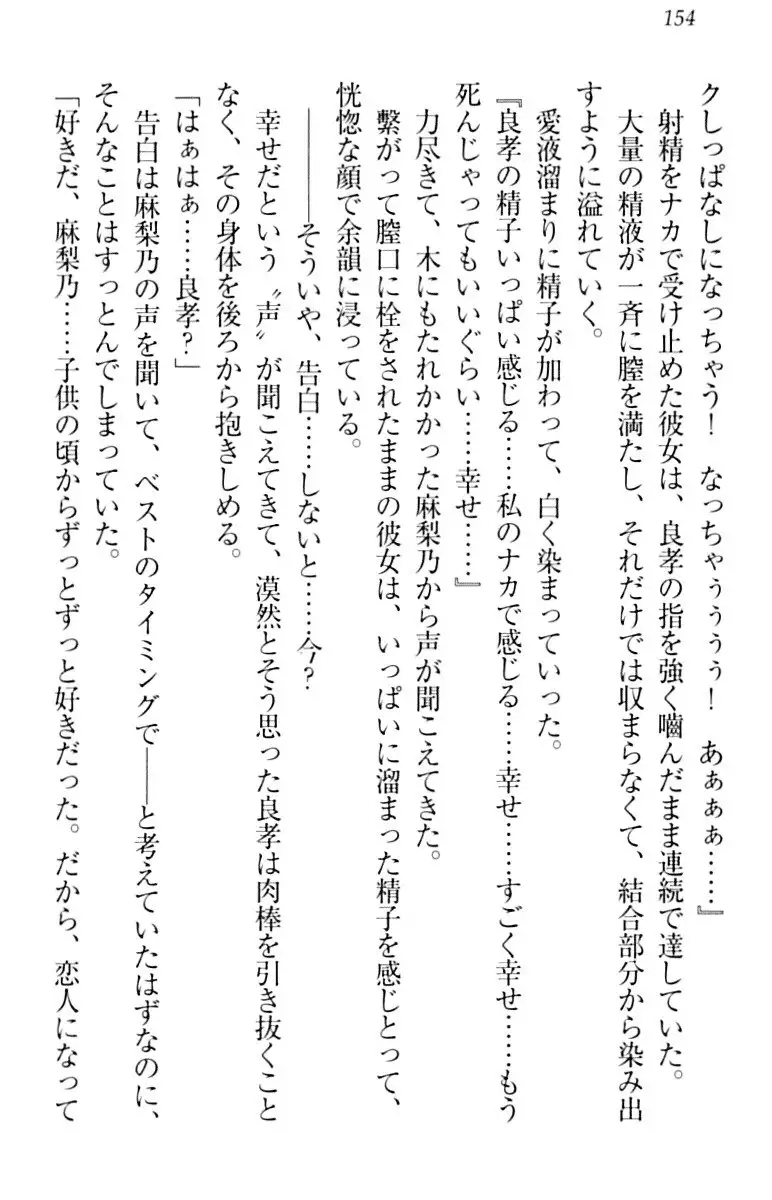 154
クしっぱなしになっちゃう！　なっちゃぅぅぅぅ！　あぁぁぁ……』
射精をナカで受け止めた彼女は、良孝の指を強く嚙んだまま連続で達していた。
大量の精液が一斉に膣を満たし、それだけでは収まらなくて、結合部分から染み出
すように溢れていく。
愛液溜まりに精子が加わって、白く染まっていった。
『良孝の精子いっぱい感じる……私のナカで感じる……幸せ……すごく幸せ……もう
死んじゃってもいいぐらい……幸せ……』
力尽きて、木にもたれかかった麻梨乃から声が聞こえてきた。
繫がって膣口に栓をされたままの彼女は、いっぱいに溜まった精子を感じとって、
恍惚な顔で余韻に浸っている。
――そういや、告白……しないと……今？
幸せだという〝声〟が聞こえてきて、漠然とそう思った良孝は肉棒を引き抜くこと
なく、その身体を後ろから抱きしめる。
「はぁはぁ……良孝？」
告白は麻梨乃の声を聞いて、ベストのタイミングで――と考えていたはずなのに、
そんなことはすっとんでしまっていた。
「好きだ、麻梨乃……子供の頃からずっとずっと好きだった。だから、恋人になって